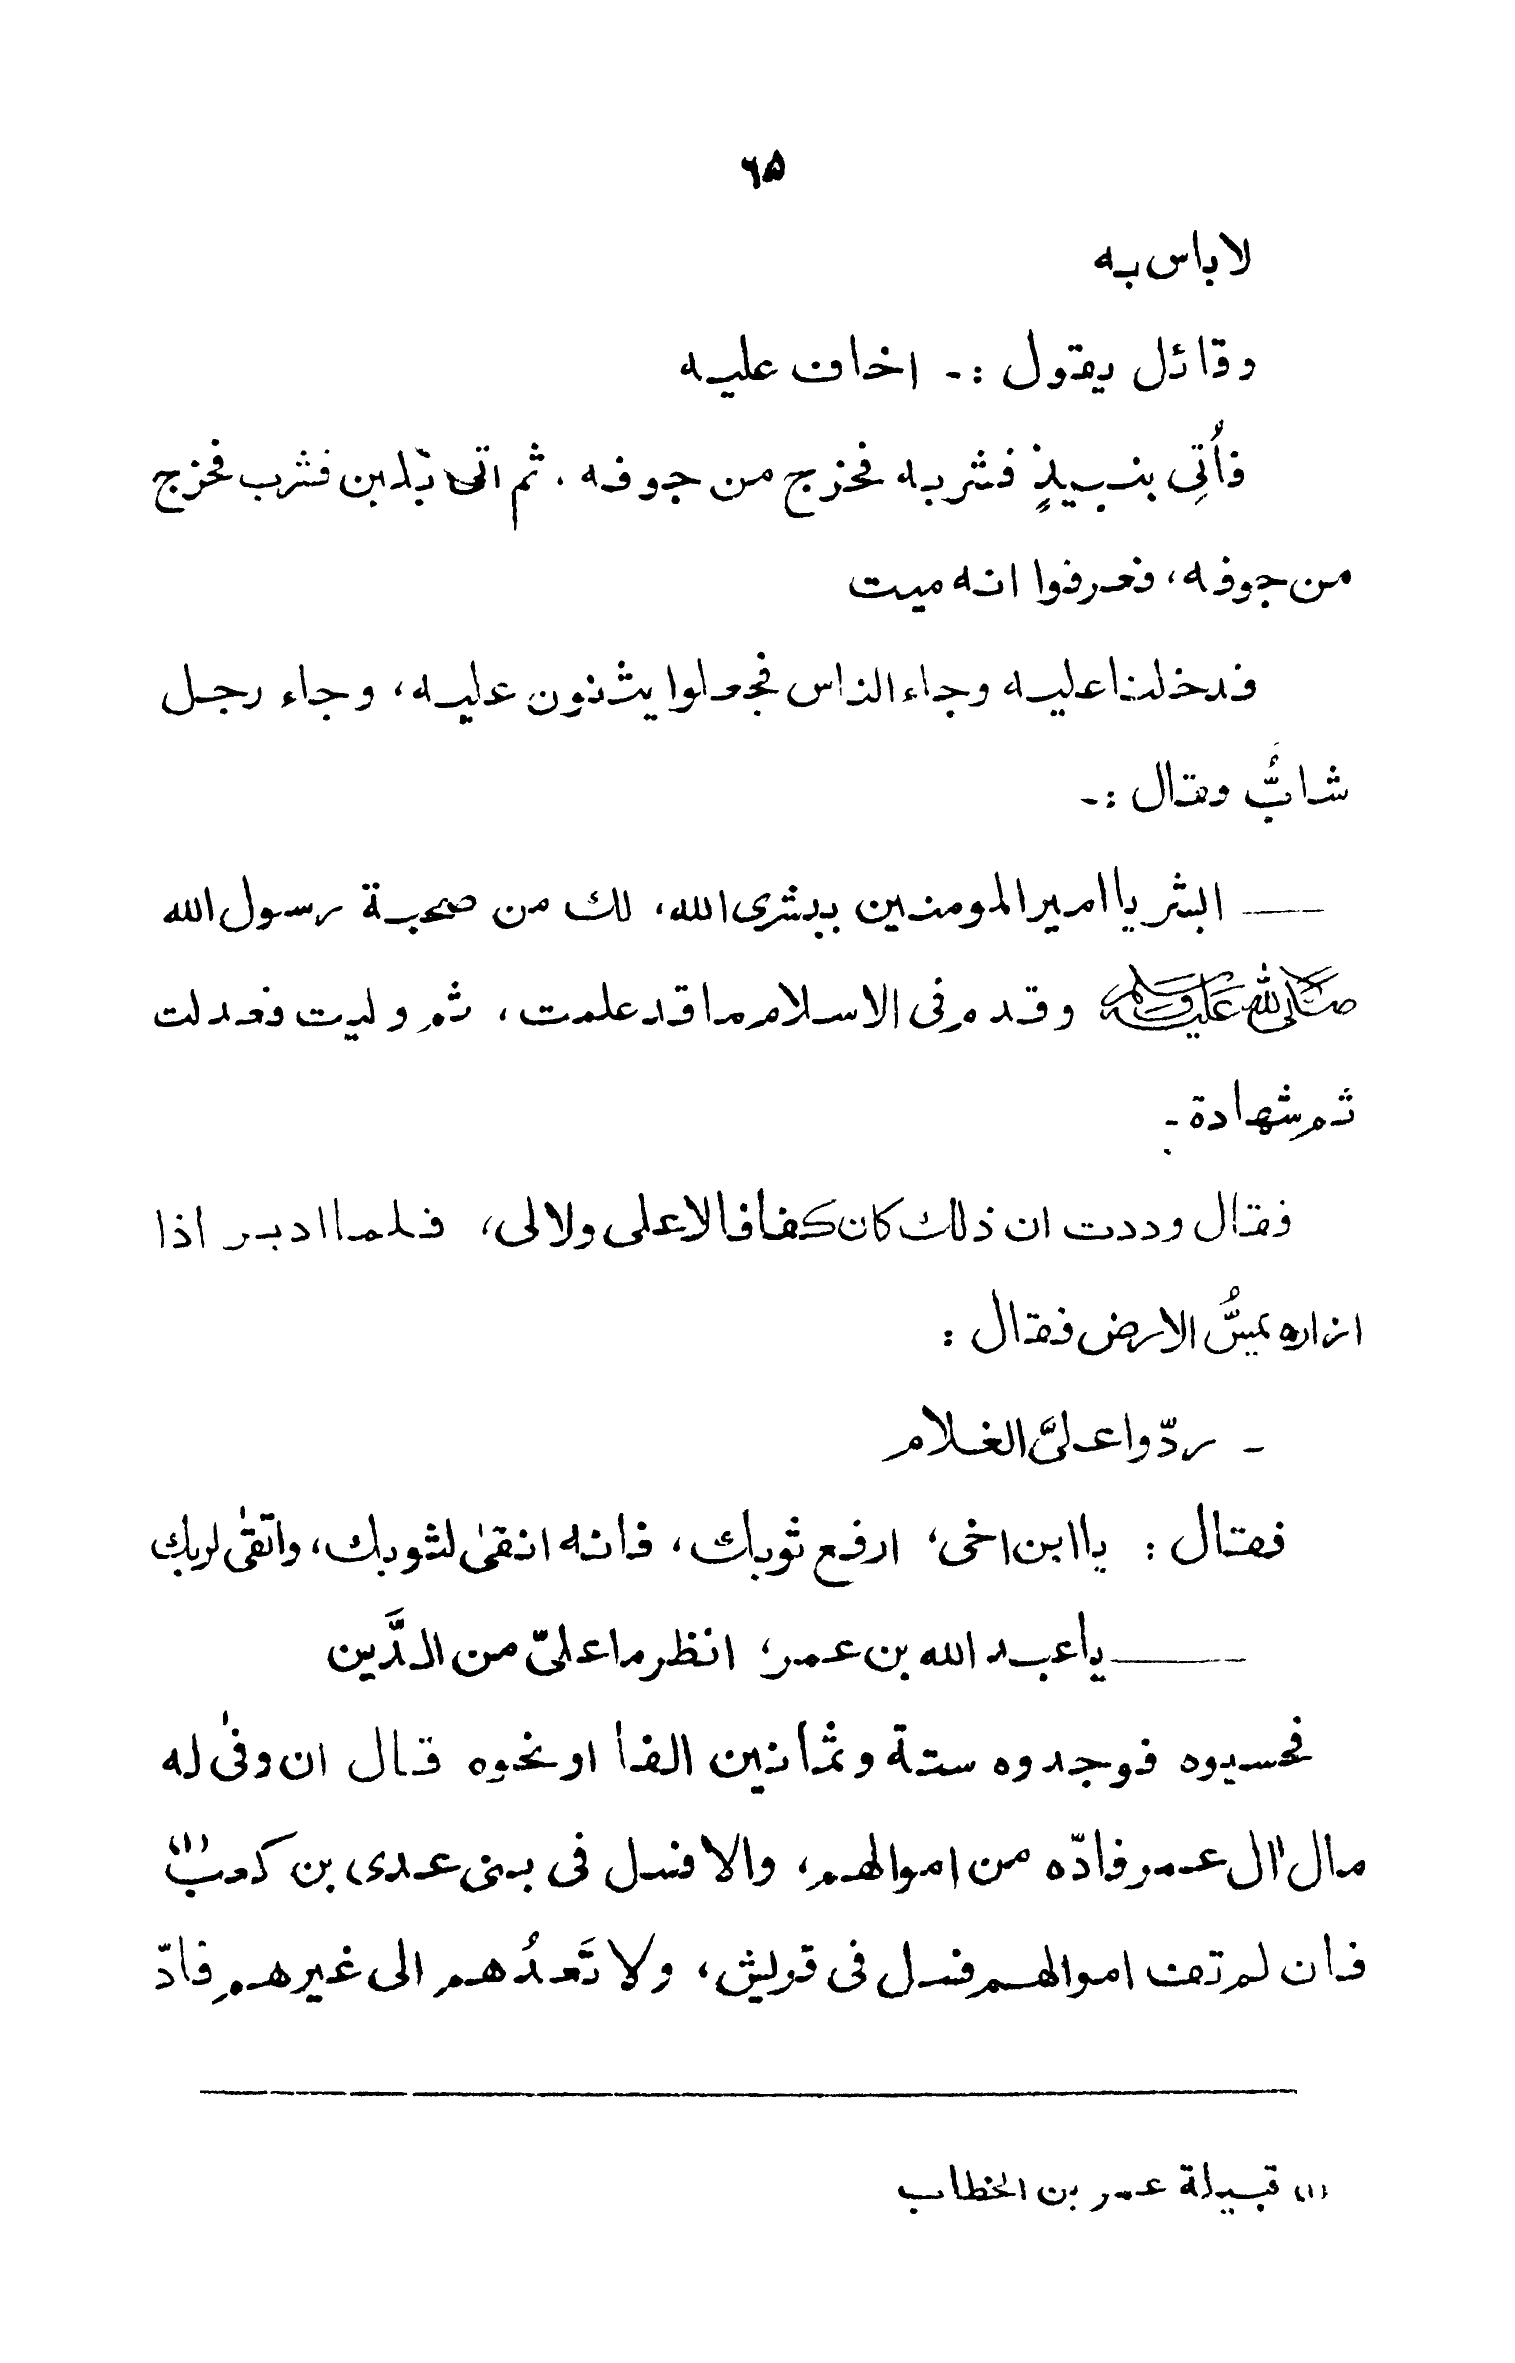 ۶۵
لا باس به
وقائل يقول :ـ اخاف عليه
فأُتِي بنبيذٍ فشربه فخرج من جوفه . ثم اتى بلبن فشرب فخرج
من جوفه، فعرفوا انه ميت
فدخلنا عليه وجاء الناس فجعلوا يثنون عليه، وجاء رجل
شابُّ وقال :ـ
— ابشر يا امير المومنين ببشرى الله، لك من صحبة رسول الله
صلى الله عليه وسلم وقدم فى الاسلام ما قد علمت، ثم وليت فعدلت
ثم شهادة ـ
فقال وددت ان ذلك كان كفافا لا على ولا لى، فلما ادبر اذا
ازاره يمسُّ الارض فقال :
ـ ردّوا علىَّ الغلام
فقال : يا ابن اخى، ارفع ثوبك، فانه انقىٰ لثوبك، واتقىٰ لربك
— يا عبد الله بن عمر، انظر ما علىّ من الدَّين
فحسبوه فوجدوه ستة وثمانين الفا او نحوه قال ان وفىٰ له
مال اٰل عمر فادّه من اموالهم، والا فسل فى بنى عدى بن كعب (۱)
فان لم تف اموالهم فسل فى قريش، ولا تَعدُهم الى غيرهم فادّ
(۱) قبيلة عمر بن الخطاب